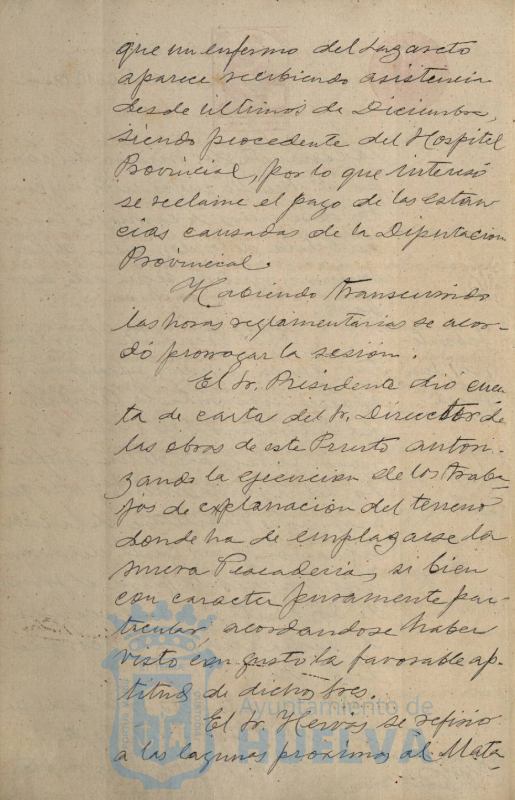 que un enfermo del Lazareto
aparece recibiendo asistencia
desde ultimos de Diciembre,
siendo procedente del Hospital
Provincial, por lo que interesó
se reclame el pago de las estan-
cias causadas de la Diputacion
Provincial.
Habiendo transcurrido
las horas reglamentarias se acor-
dó prorrogar la sesión.
El Sr. Presidente dió cuen-
ta de carta del Sr. Director de
las obras de este Puerto autori-
zando la ejecucion de los traba-
jos de explanación del terreno
donde ha de emplazarse la
nueva Pescaderia, si bien
con caracter puramente par-
ticular, acordandose haber
visto con gusto la favorable ap-
titud de dicho Sres.
El Sr. Hervás se refirió
a las lagunas proximas al Mata
Ayuntamiento de
HUELVA